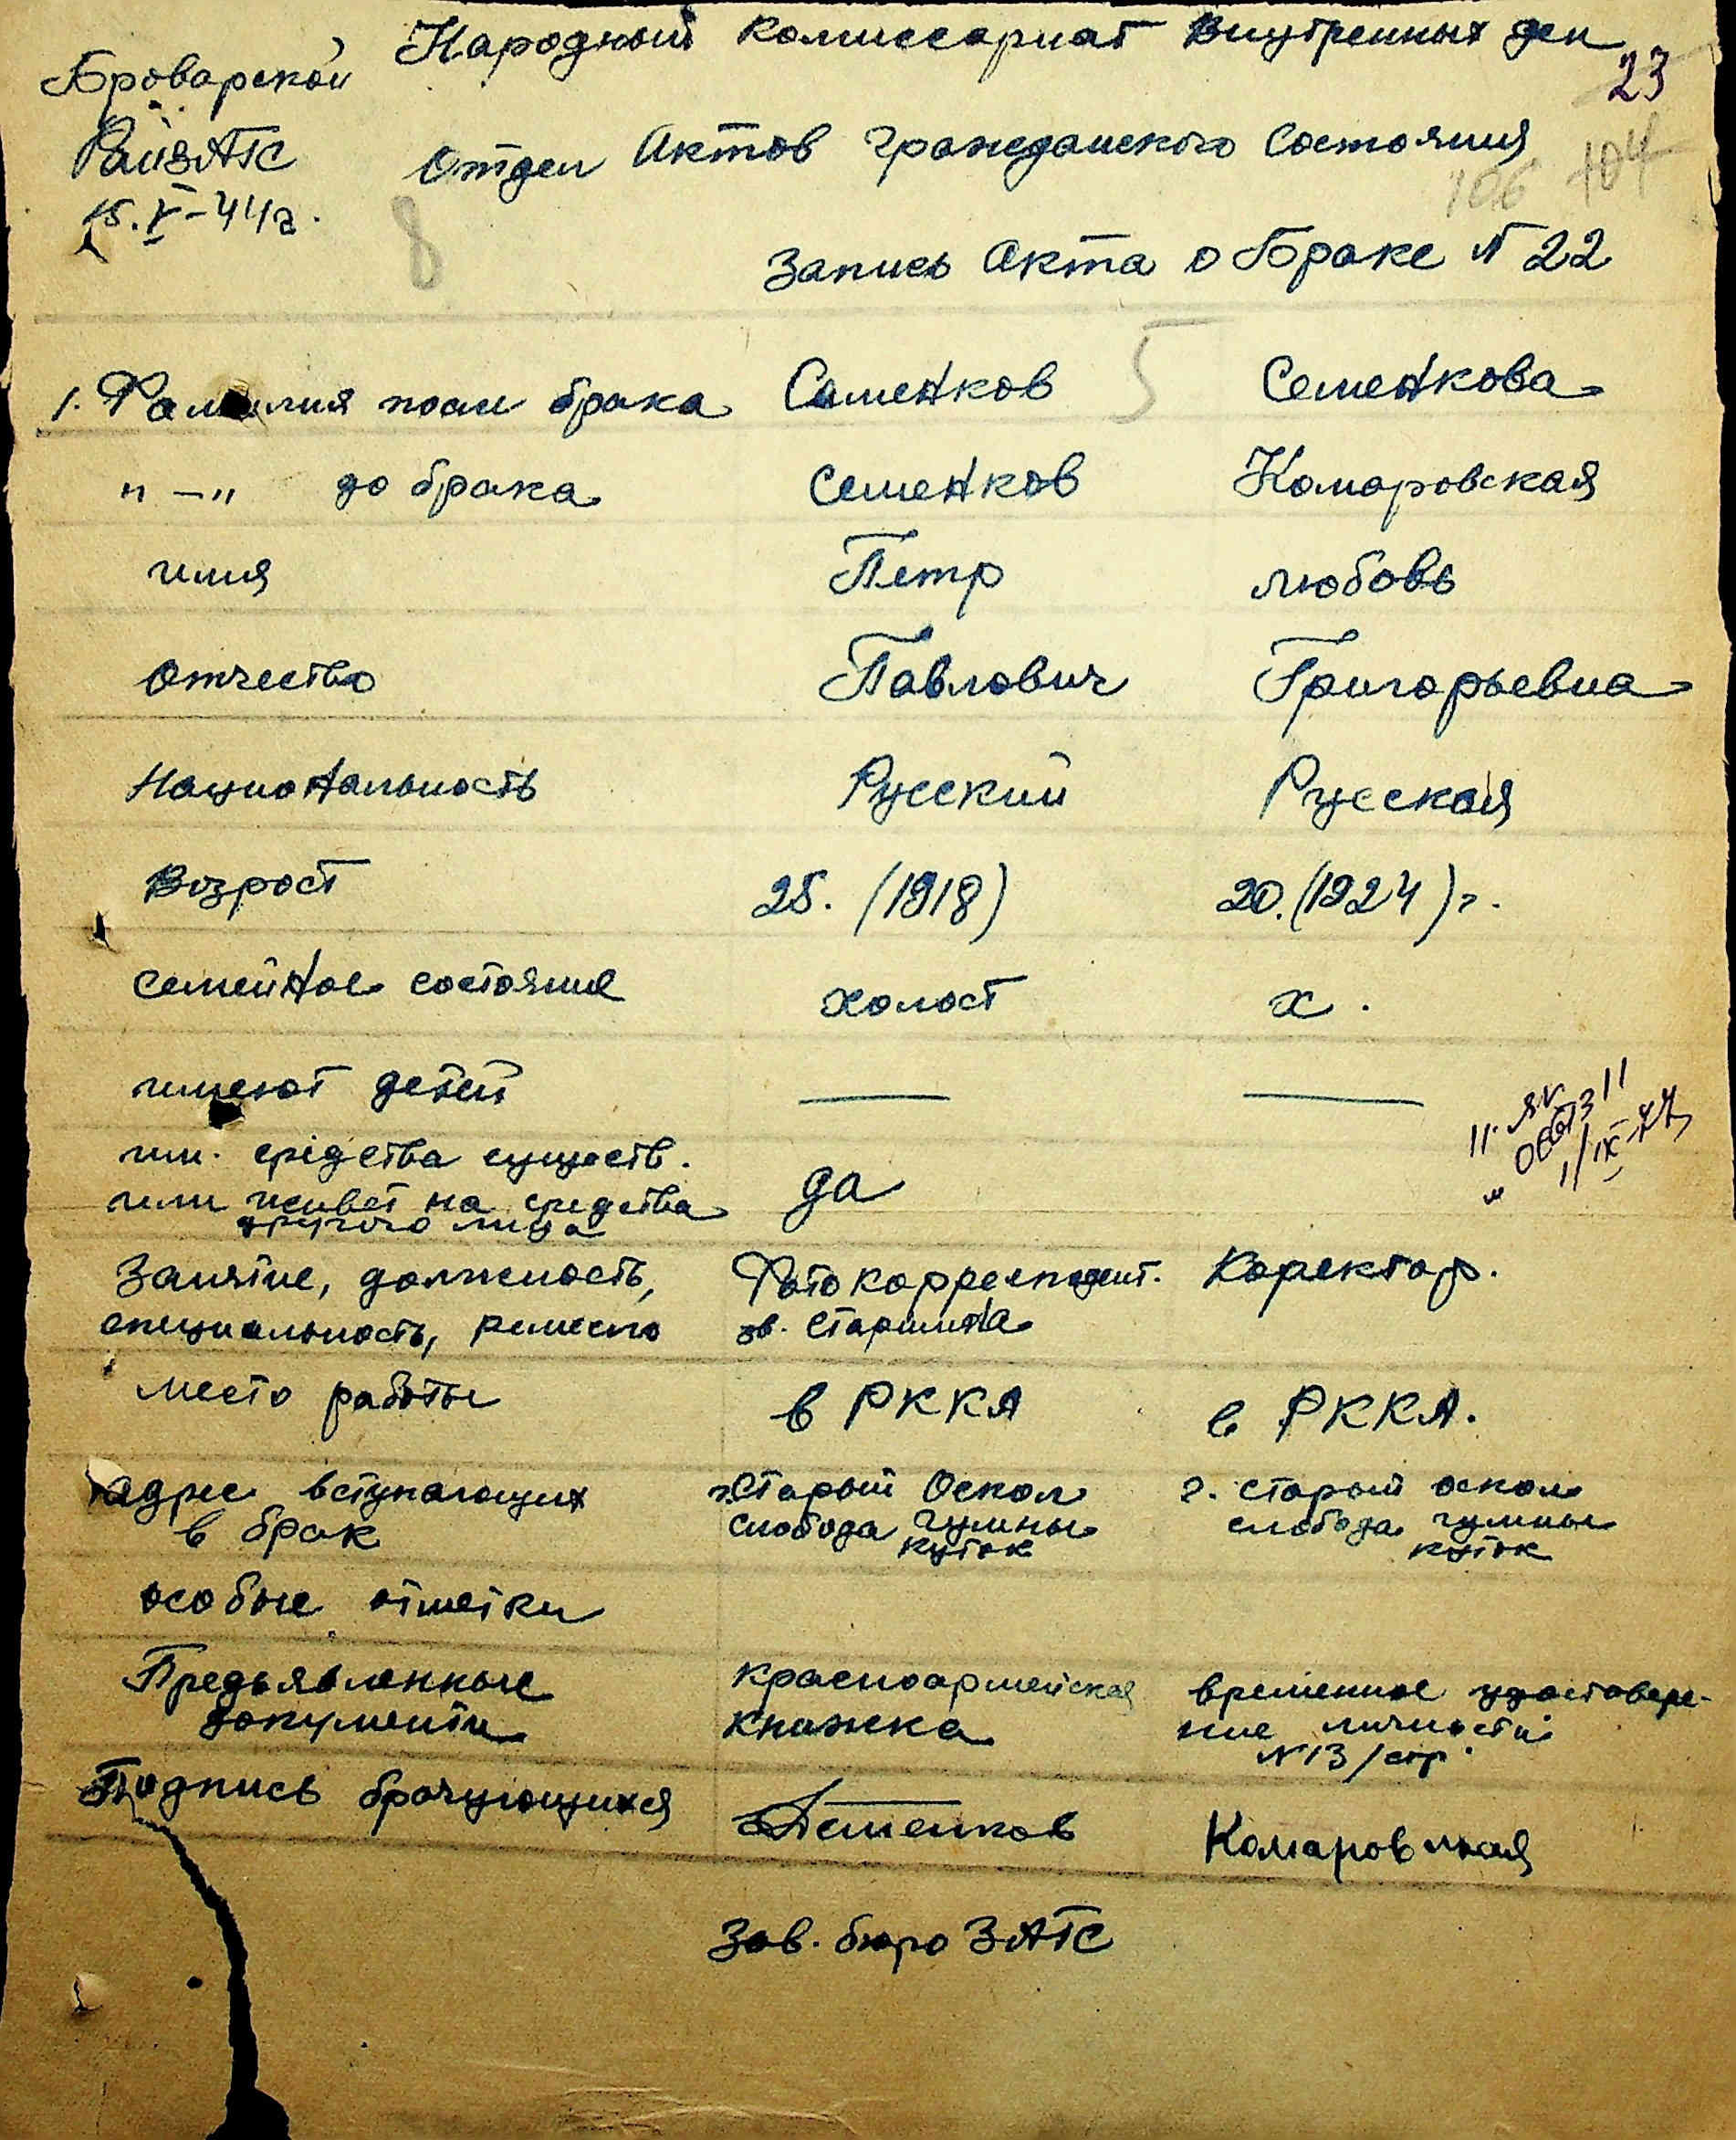 Народный Комиссариат Внутренных дел
23
Броварской
РайЗАГС
15.V-44г.
Отдел Актов Гражданского Состояния
106 104
8
Запись Акта о Браке N 22
5
1. Фамилия посли брака Семенков Семенкова
" —" до брака Семенков Комаровская
имя Петр Любовь
Отчество Павлович Григорьевна
Национальность Русский Русская
Возрост 25. (1918) 20. (1924) г.
Семейное состояние холост х.
имеют детей — —
им. средства существ.
или живет на средства
другого лица
да
Занятие, должность, Фото корресподент. Коректор.
специальность, ремесло зв. Старшина
место работы в РККА в РККА.
адрес вступающих г. Старый Оскол г. Старый Оскол
в брак слобода Гумны слобода Гумны
куток куток
особые отметки
Предьявленные красноармейская временное удостовере-
документы книжка ние личности
N 13/стр.
Подпись брачующихся Семенков Комаровская
Зав. бюро ЗАГС